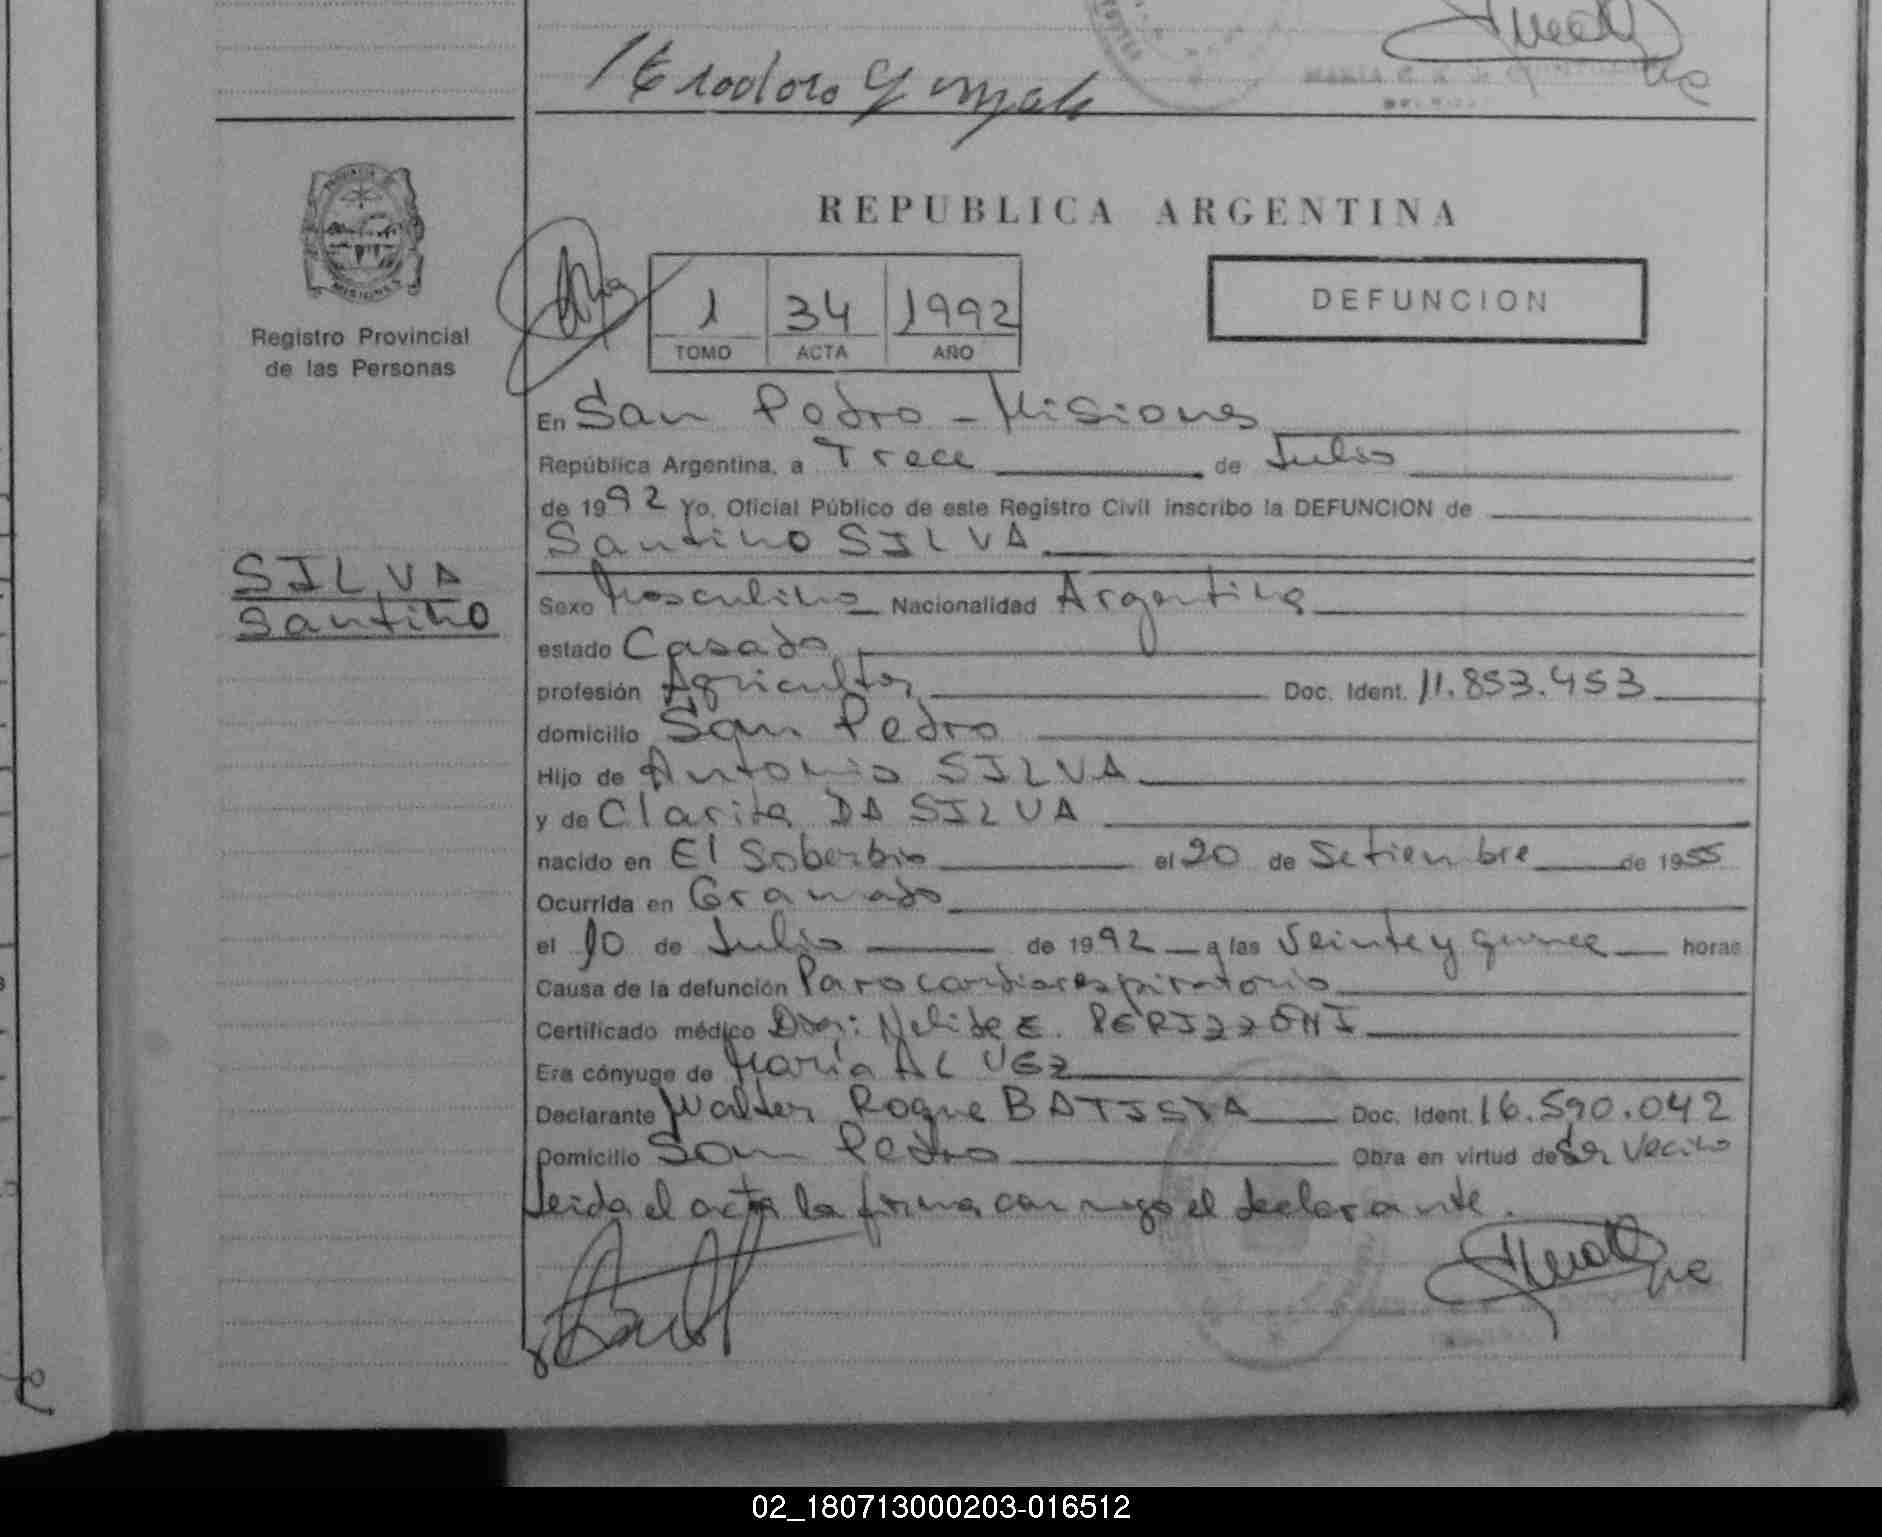 Teodoro Gonzalez
REPUBLICA ARGENTINA
MISIONES
Registro Provincial
de las Personas
1 34 1992
TOMO ACTA AÑO
DEFUNCION
En San Pedro - Misiones
República Argentina, a Trece de Julio
de 1992 Yo, Oficial Público de este Registro Civil inscribo la DEFUNCION de
Santino SILVA
SILVA
Santino
Sexo Masculino Nacionalidad Argentina
estado Casado
profesión Agricultor Doc. Ident. 11.853.453
domicilio San Pedro
Hijo de Antonio SILVA
y de Clarita DA SILVA
nacido en El Soberbio el 20 de Setiembre de 1955
Ocurrida en Gramado
el 10 de Julio de 1992 a las Veinte y quince horas
Causa de la defunción Paro cardiorespiratorio
Certificado médico Dra: Nelide E.
Era cónyuge de María ALVEZ
Declarante Walter Roque BATISTA Doc. Ident. 16.590.042
Domicilio San Pedro Obra en virtud de Ser Vecino
Leida el acta la firma con migo el declarante.
02_180713000203-016512